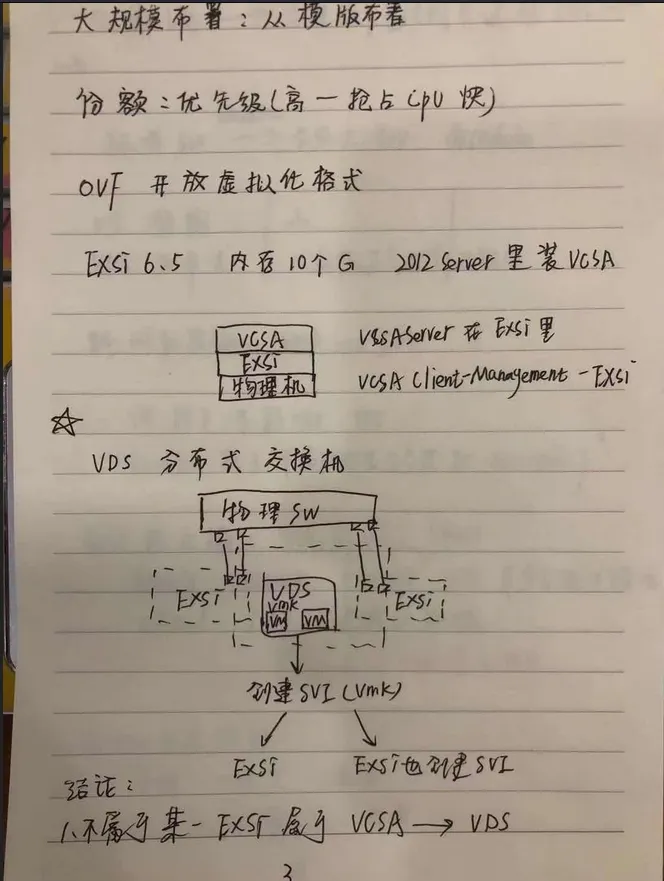 大规模布署:从模版布署
份额:优先级(高一抢占CPU快)
OVF 开放虚拟化格式
EXSi 6.5 内存10个G 2012 Server 里装VCSA
VCSA
EXSi
物理机
VSSAServer 在 EXSi里
VCSA Client-Management - EXSi
☆
VDS 分布式交换机
物理SW
EXSi
VDS
vmk
VM
VM
EXSi
创建SVI(Vmk)
EXSi
EXSi也创建SVI
结论:
1、不属于某一EXSi 属于 VCSA → VDS
3